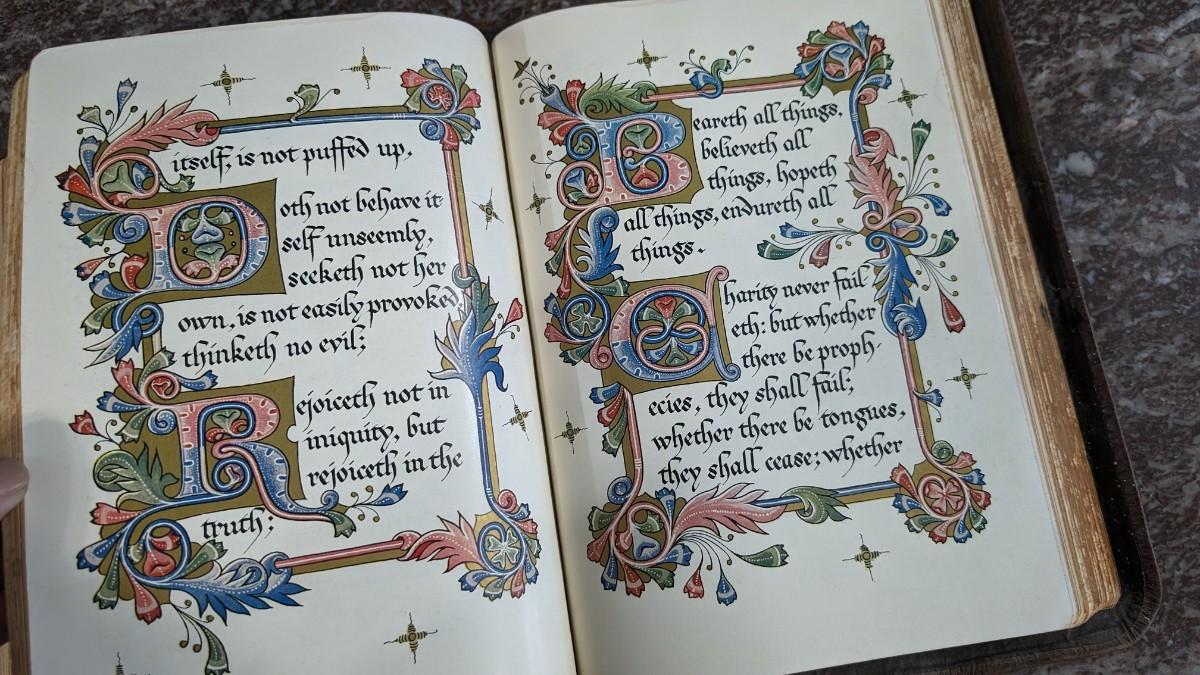 itself, is not puffed up,
Doth not behave it
self unseemly,
seeketh not her
own, is not easily provoked,
thinketh no evil;
Rejoiceth not in
iniquity, but
rejoiceth in the
truth;
Beareth all things,
believeth all
things, hopeth
all things, endureth all
things.
Charity never fail
eth: but whether
there be proph-
ecies, they shall fail;
whether there be tongues,
they shall cease; whether